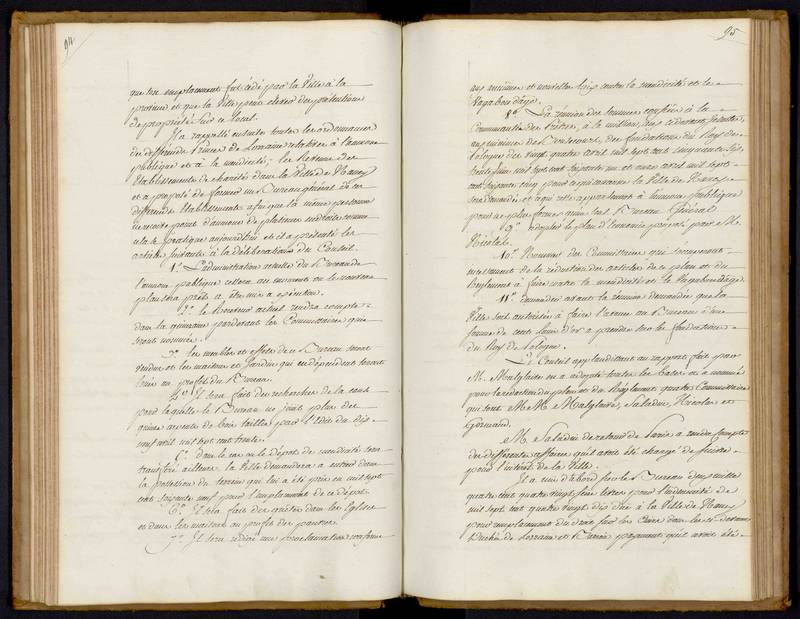 94
que son emplacement fut cédé par la Ville à la
province et que la Ville peut élever des prétentions
de propriété sur ce local.
Il a rappellé ensuite toutes les ordonnances
des différents Princes de Lorraine relatives à l'aumone
publique et à la mendicité; les Revenus des
Etablissements de charité dans la Ville de Nancy
et a proposé de former un Bureau général de ces
différents Etablissements afin que la même personne
ne reçoive point d'aumones de plusieurs endroits comme
cela se pratique aujourd'hui et il a présenté les
articles suivants à la délibération du Conseil.
1.º L'administration actuelle du Bureau de
l'aumone publique cessera au moment où le nouveau
plan sera prêt à être mis à exécution.
2.º le Receveur actuel rendra compte
dans la quinzaine pardevant les Commissaires qui
seront nommés.
3.º les meubles et effets de ce Bureau seront
vendus et les maisons et Jardin qui en dépendent seront
loués au profit du Bureau.
4.º Il sera fait des recherches de la cause
pour laquelle le Bureau ne jouit plus des
quinze arpents de bois taillis par l'Edit du dix
sept avril mil sept cent trente.
5.º dans le cas où le dépot de mendicité sera
transféré ailleurs la Ville demandera à rentrer dans
la possession du terrein qui lui a été pris en mil sept
cent soixante neuf pour l'emplacement de ce dépot.
6.º Il sera fait des quêtes dans les Eglises
et dans les maisons au profit des pauvres.
7.º Il sera rédigé une proclamation conforme
95
aux anciennes et nouvelles loix contre la mendicité et le
Vagabondage.
8.º La réunion des sommes confiées à la
Communauté des Frères, à la maison des
aux mineurs de Bonsecours, des fondations du Roy de
Pologne des vingt quatre avril mil sept cent cinquante six
trente juin mil sept cent soixante un et onze avril mil sept
cent soixante cinq pour ce qui concerne la Ville de Nancy
sera demandée et ce qui reste appartenant à l'aumone publique
pour ne plus former qu'un seul Bureau Général.
9.º adopter le plan d'économie proposé par M.
Nicolas.
10.º Nommer des Commissaires qui s'occuperont
incessamment de la rédaction des articles de ce plan et du
Reglement à faire contre la mendicité et le Vagabondage.
11.º demander avant la réunion demandée que la
Ville soit autorisée à faire l'avance au Bureau d'une
somme de cent louis d'or à prendre sur la fondation
du Roy de Pologne.
Le Conseil applaudissant au rapport fait par
M. Malglaive en a adopté toutes les bases et a nommé
pour la rédaction du plan et du Réglement quatre Commissaires
qui sont M.M. Malglaive, Saladin, Nicolas et
Germain.
M. Saladin de retour de Paris a rendu compte
des différentes affaires qu'il avoit été chargé de suivre
pour l'intérêt de la Ville.
Il a vu d'abord que le Bureau des
quatre cent quatre vingt seize livres pour l'indemnité de
mil sept cent quatre vingt dix due à la Ville de Nancy
pour remplacement du droit sur les Cuirs dans les ci-devant
Duchés de Lorraine et Barrois payement qu'il avoit été